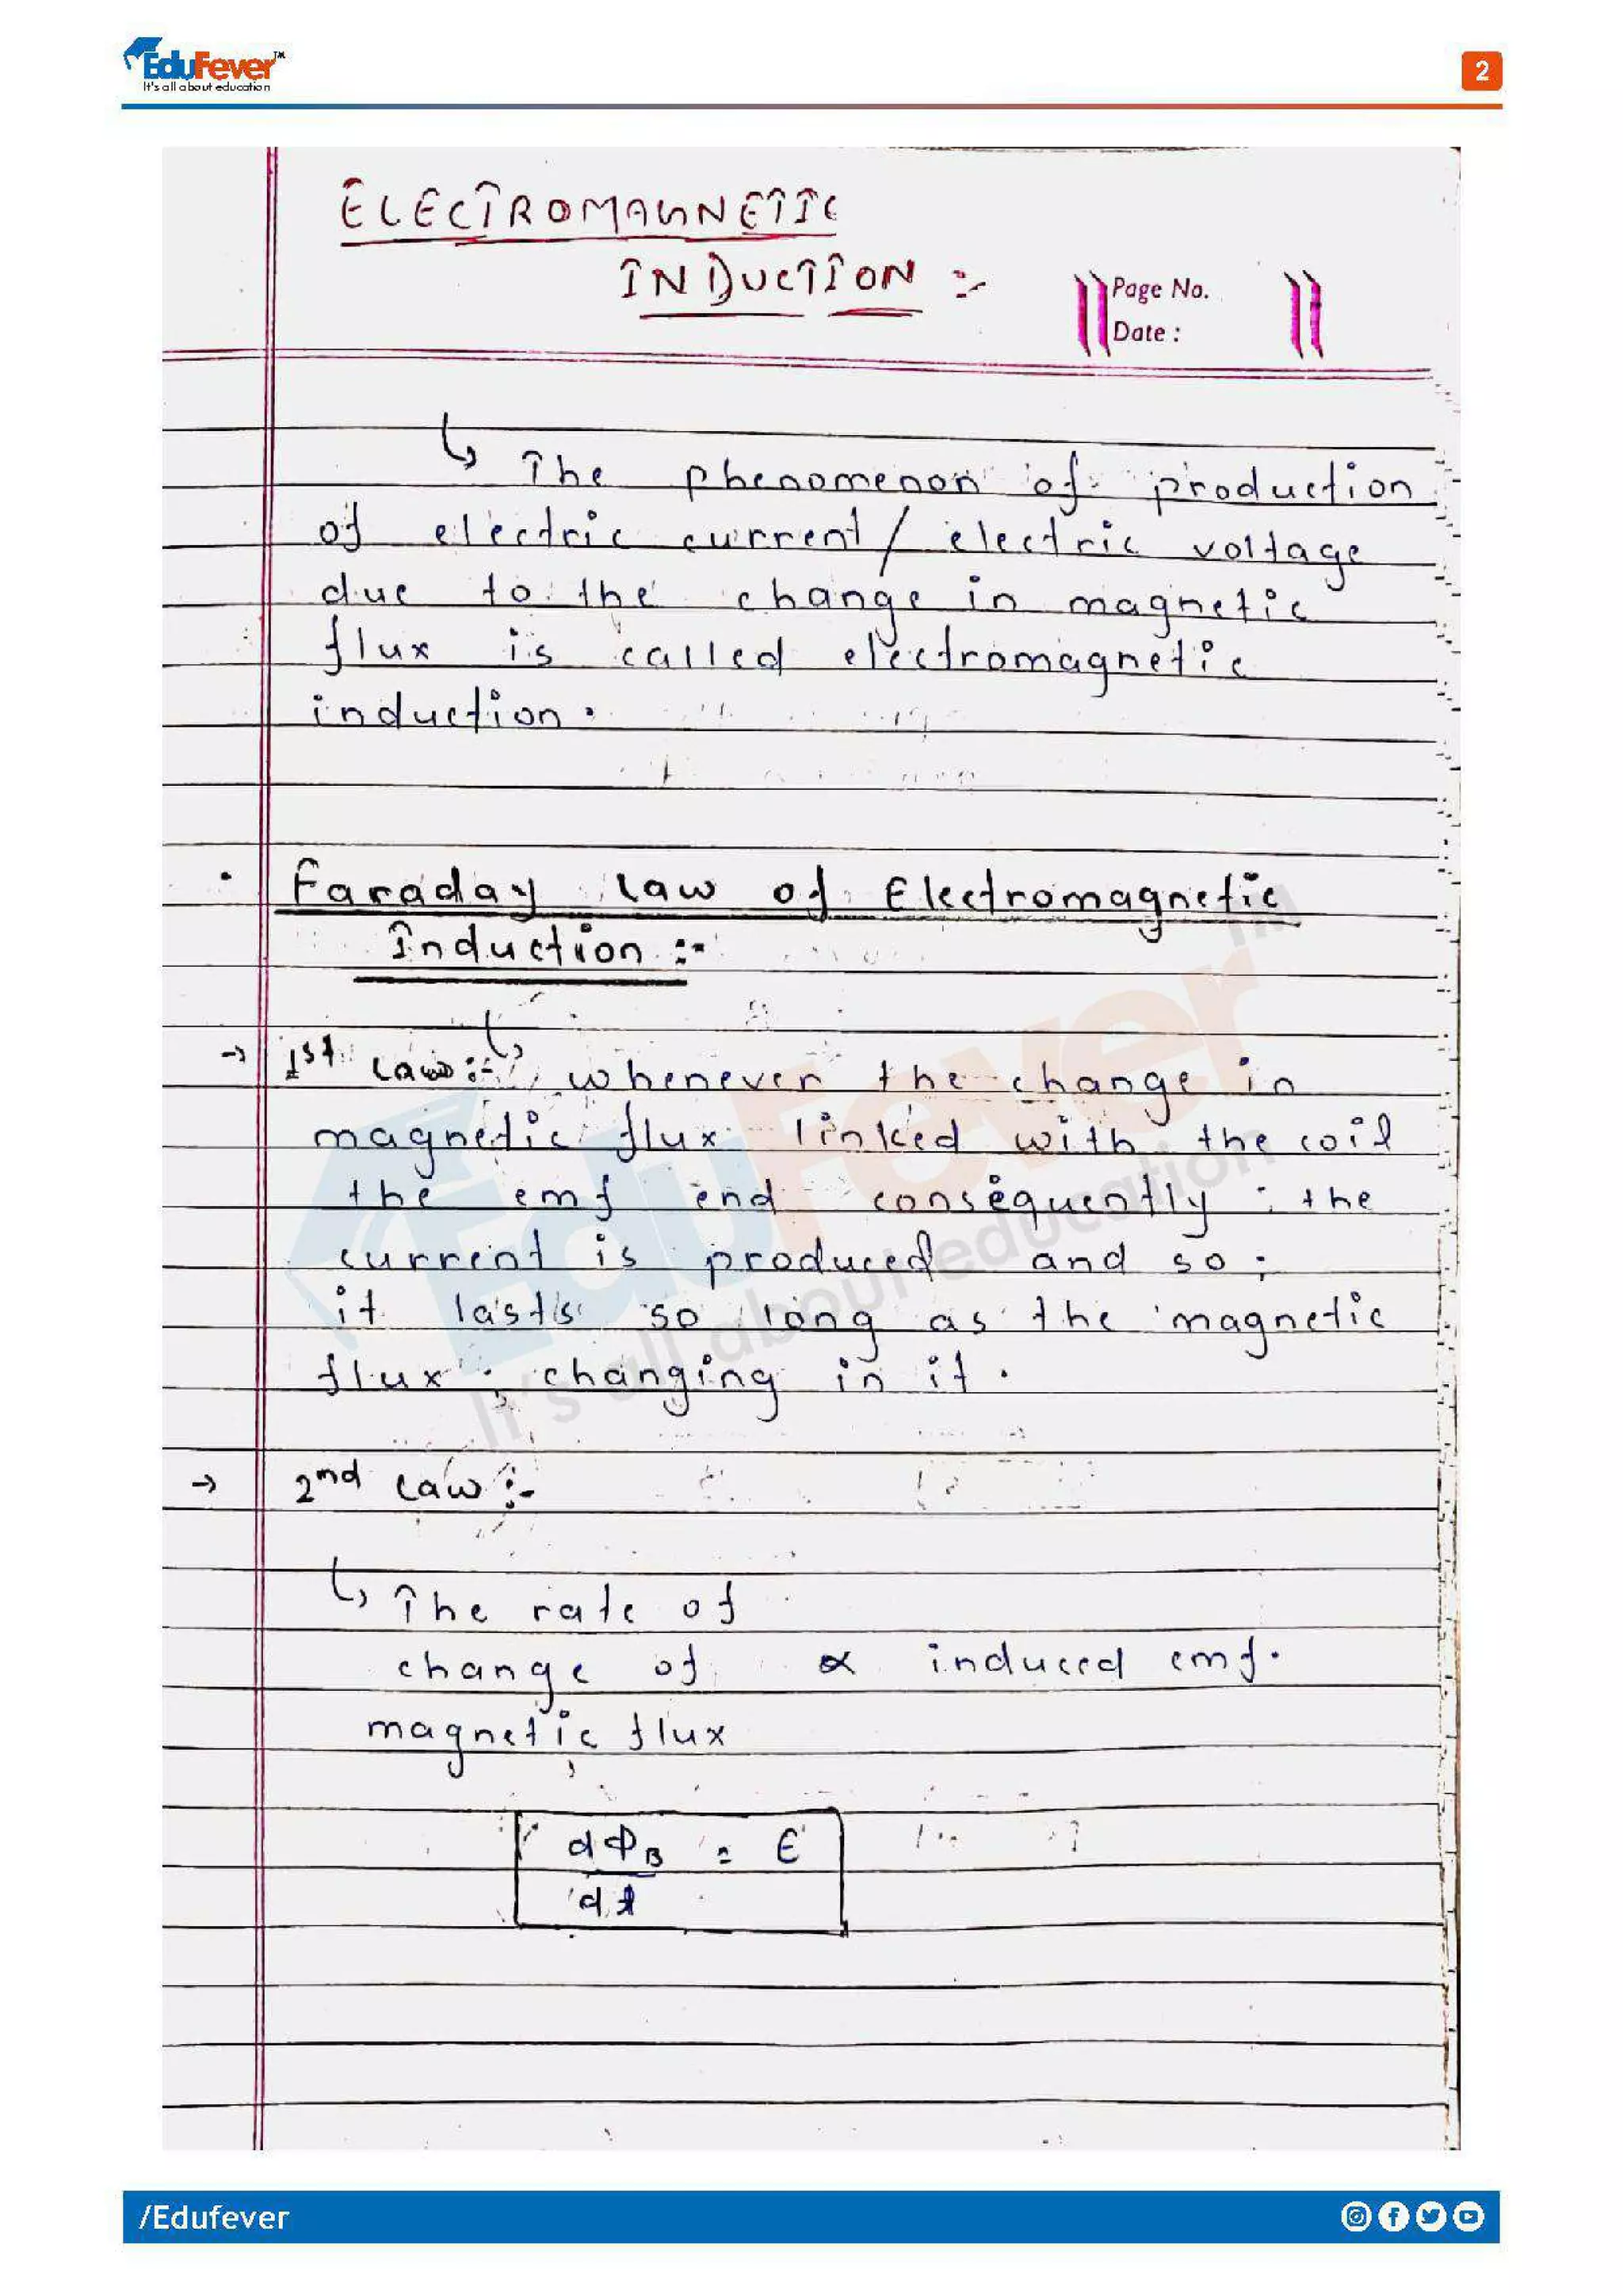 EduFever™
It's all about education
2
ELECTROMAGNETIC
INDUCTION :-
Page No.
Date :
↳ The phenomenon of production
of electric current / electric voltage
due to the change in magnetic
flux is called electromagnetic
induction.
• Faraday Law of Electromagnetic
Induction :-
→ 1st Law :- ↳ whenever the change in
magnetic flux linked with the coil
the emf end consequently the
current is produced and so ;
it lasts so long as the magnetic
flux ; changing in it .
→ 2nd Law :-
↳ The rate of
change of ∝ induced emf.
magnetic flux
dΦB = ε
dt
EduFever™
It's all about education
/Edufever